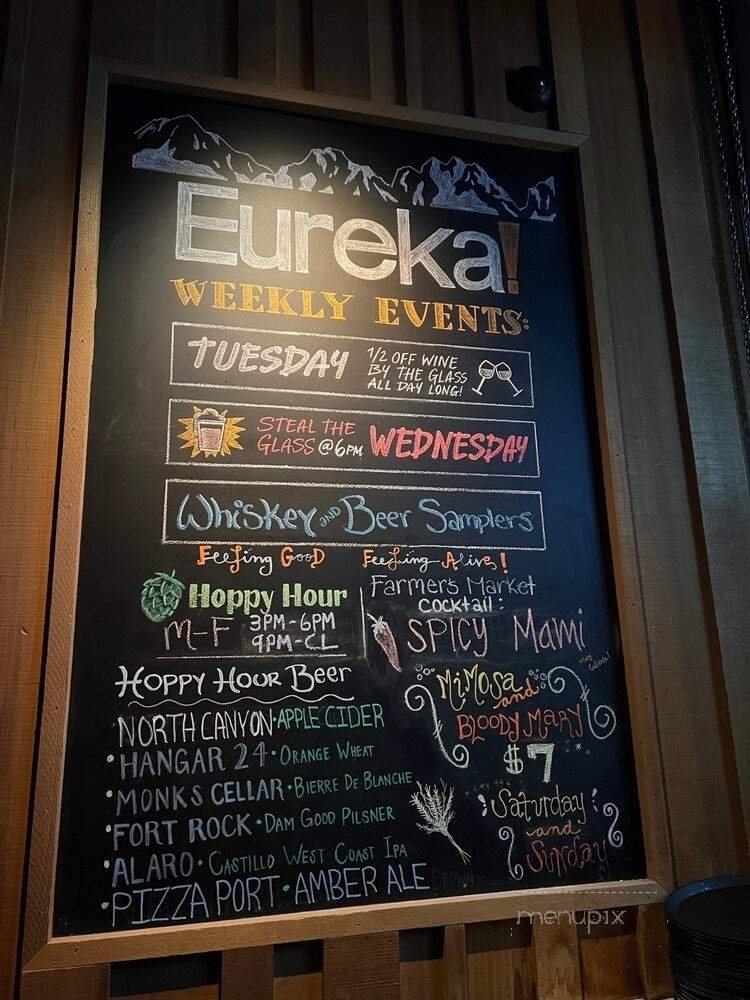 Eureka!
WEEKLY EVENTS:
TUESDAY
1/2 OFF WINE
BY THE GLASS
ALL DAY LONG!
STEAL THE
GLASS @6PM
WEDNESDAY
Whiskey AND Beer Samplers
Feeling Good Feeling Alive!
Hoppy Hour
M-F 3PM-6PM
9PM-CL
Farmer's Market
Cocktail:
SPICY Mami
Muy Caliente!
HOPPY HOUR BEER
NORTH CANYON • APPLE CIDER
• HANGAR 24 • ORANGE WHEAT
• MONKS CELLAR • BIERRE DE BLANCHE
• FORT ROCK • DAM GOOD PILSNER
• ALARO • CASTILLO WEST COAST IPA
• PIZZA PORT • AMBER ALE
MiMOSA
and
BLOODY MARY
$7
Saturday
and
Sunday
menupix